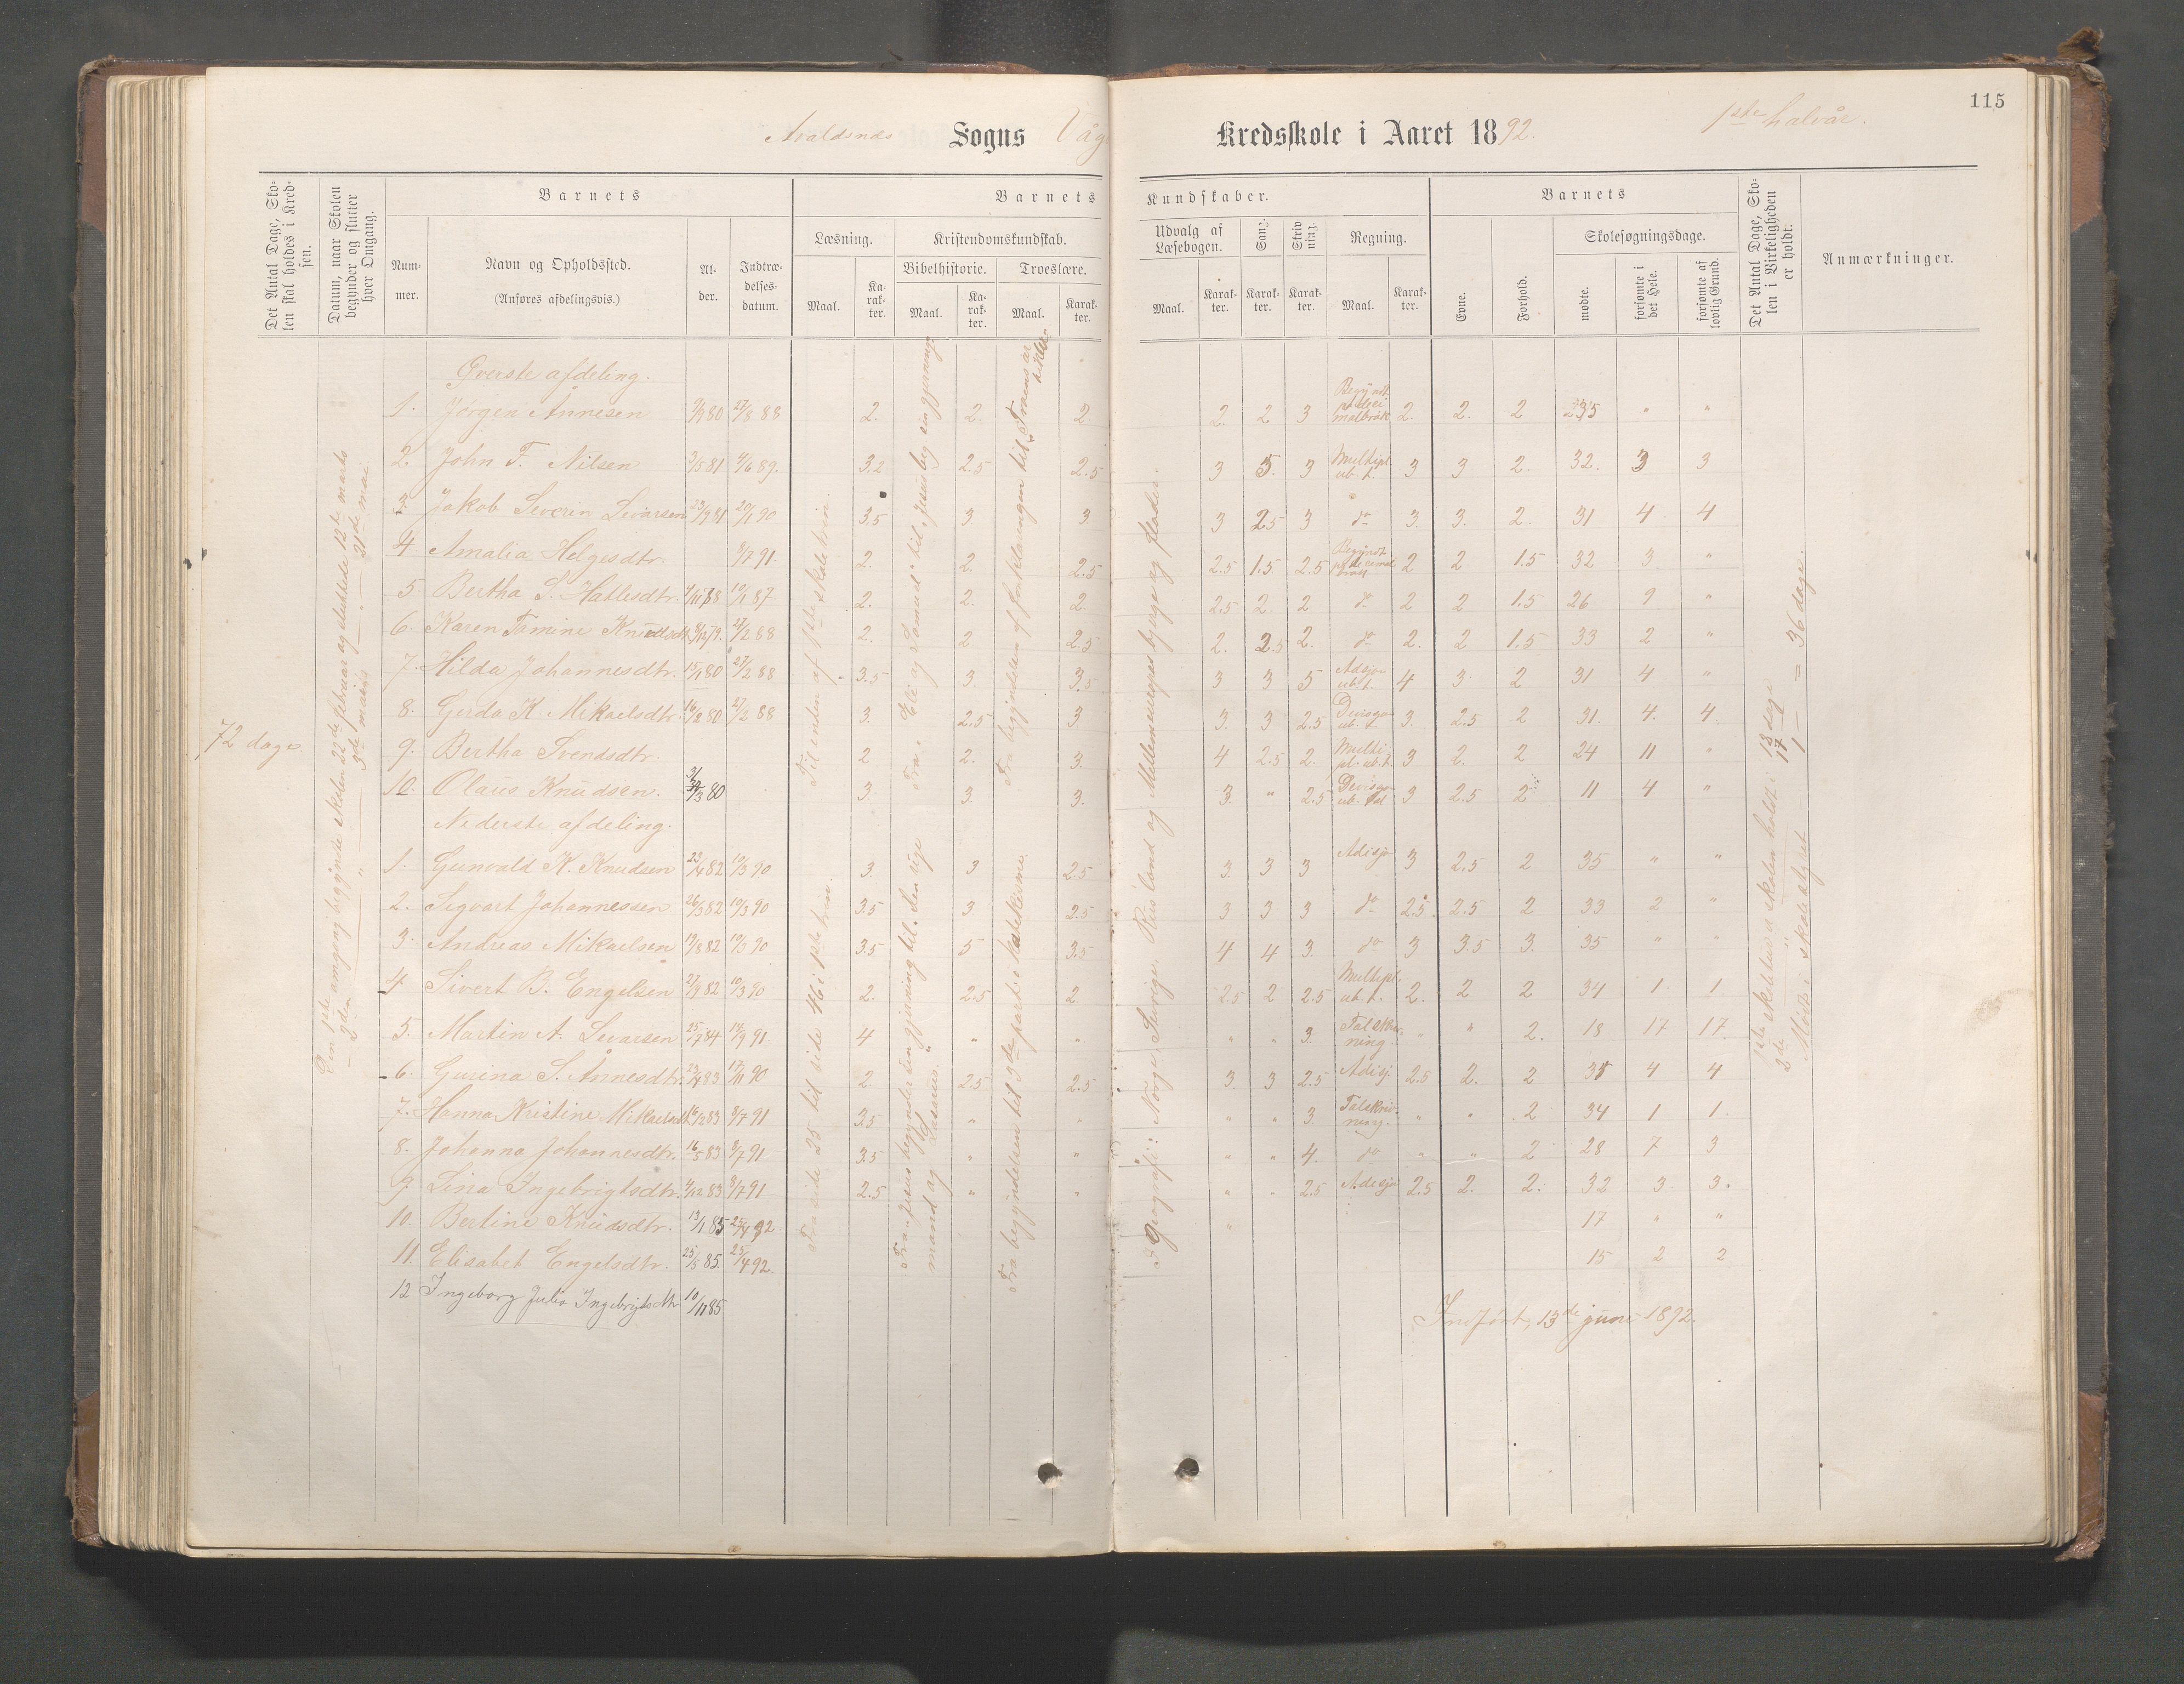 115
Avaldsnes Sogns Våg Kredsskole i Aaret 1892. 1ste halvår.
Det Antal Dage, Sko-
len skal holdes i Kred-
sen.
Datum, naar Skolen
begynder og slutter
hver Omgang.
Barnets
Num-
mer.
Navn og Opholdssted.
(Anføres afdelingsvis.)
Al-
der.
Indtræ-
delses-
datum.
Barnets Kundskaber.
Læsning.
Maal.
Ka-
rak-
ter.
Kristendomskundskab.
Bibelhistorie.
Maal.
Ka-
rak-
ter.
Troeslære.
Maal.
Karak-
ter.
Udvalg af
Læsebogen.
Maal.
Karak-
ter.
Sang.
Karak-
ter.
Skriv-
ning.
Karak-
ter.
Regning.
Maal.
Karak-
ter.
Barnets
Evne.
Forhold.
Skolesøgningsdage.
mødte.
forsømte i
det Hele.
forsømte af
lovlig Grund.
Det Antal Dage, Sko-
len i Virkeligheden
er holdt.
Anmærkninger.
72 dage.
Den 1ste omgang begyndte skolen 22de februar og sluttede 12te marts
Øverste afdeling.
1. Jørgen Ånnesen 80 27/8 88 2. 2. 2 2. 2 3 2. 2. 2 35 " "
2. John F. Nilsen 3/5 81 4/6 89. 3.2 2.5 2.5 3 3. 3 Multipl. ub. t. 3 3 2. 32. 3 3
3. Jakob Severin Sivarsen 23/9 81 20/1 90 3.5 3. 3 3 2.5 3 do 3. 3. 2. 31 4 4
4 Amalia Helgesdtr. 8/7 91. 2. 2. 2.5 2.5 1.5. 2.5 2 2 1.5 32 3 "
5 Bertha S. Hatlesdtr. 10/1 87. 2. 2. 2. 2.5 2. 2 do 2 2 1.5 26 9 "
6. Karen Tamine 27/2 88 2. 2. 2.5 2. 2.5 2. do 2. 2 1.5 33 2 "
7. Hilda Johannesdtr. 15/1 80 27/2 88 3.5 3. 3.5 3 3 5 Adisjo ub. t. 4 3. 2 31 4 "
8. Gerda K. Mikaelsdtr. 16/2 80 27/2 88 3. 2.5 3 3. 3 2.5 ub. t. 3. 2.5 2 31. 4. 4.
9. Bertha Svendsdtr. 2. 2. 3. 4 2.5 2. Multi- pl. ub. t. 3 2. 2 24 11 "
10. Olaus Knudsen. 80 3. 3. 3. 3. " 2.5 3 2.5 2 11 4 "
Nederste afdeling.
1. Gunvald K. Knudsen 23/4 82 10/3 90 3. 3 2.5 3. 3 3 Adisjo 3 2.5 2 35 " "
2. Sigvart Johannessen 26/3 82 10/3 90 3.5 3 2.5 3 3 3 do 2.5 2.5 2 33 2 "
3. Andreas Mikaelsen 19/8 82 10/3 90 3.5 5 3.5 4 4 3. do 3 3.5 3. 35 " "
4. Sivert B. Engelsen 27/9 82 10/3 90 2. 2.5 2 2.5 2 2.5 Multipl. ub. t. 2. 2 2 34 1. 1.
5. Martin A. Sivarsen 25/7 84 14/9 91. 4 " " " " 3. Talskriv- ning. " " 2. 18 17 17.
6. Gurina S. Ånnesdtr. 83 17/11 90 2. 2.5 2.5 3. 3 2.5 Adisj. 2.5 2. 2 4 4
7. Hanna Kristine Mikaelsdtr. 16/12 83 8/7 91 3.5 " " " " 3. Talskriv- ning. " " 2 34 1 1.
8. Johanna Johannesdtr. 16/5 83 8/7 91 3.5 " " " " 4. do " " 2 28 7 3
9. Lina Ingebrigtsdtr. 4/12 83 8/7 91 2.5 " " " " 2.5 Adisjo 2.5 2. 2. 32 3. 3.
10. Bertine Knudsdtr. 13/1 85 25/4 92 " 17 " "
11. Elisabet Engelsdtr. 25/5 85. 25/4 92. 15 2 2
12 Ingeborg Julia Ingebrigtsdtr 10/11 85
Til enden af 1ste skoletrin.
Fra side 25 til side 46 i 1ste trin.
Fra begyndelsen af forklaringen til Troens ar- tikler
Fra begyndelsen til 3de part i katekisme.
I geografi: Norge, Sverige, Rusland og Mellemeuropas bjerge og floder.
1ste skolestue er skolen holdt i 18 dage
Mødt i skolestyret 1 — = 36 dage.
Indført, 13de juni 1892.